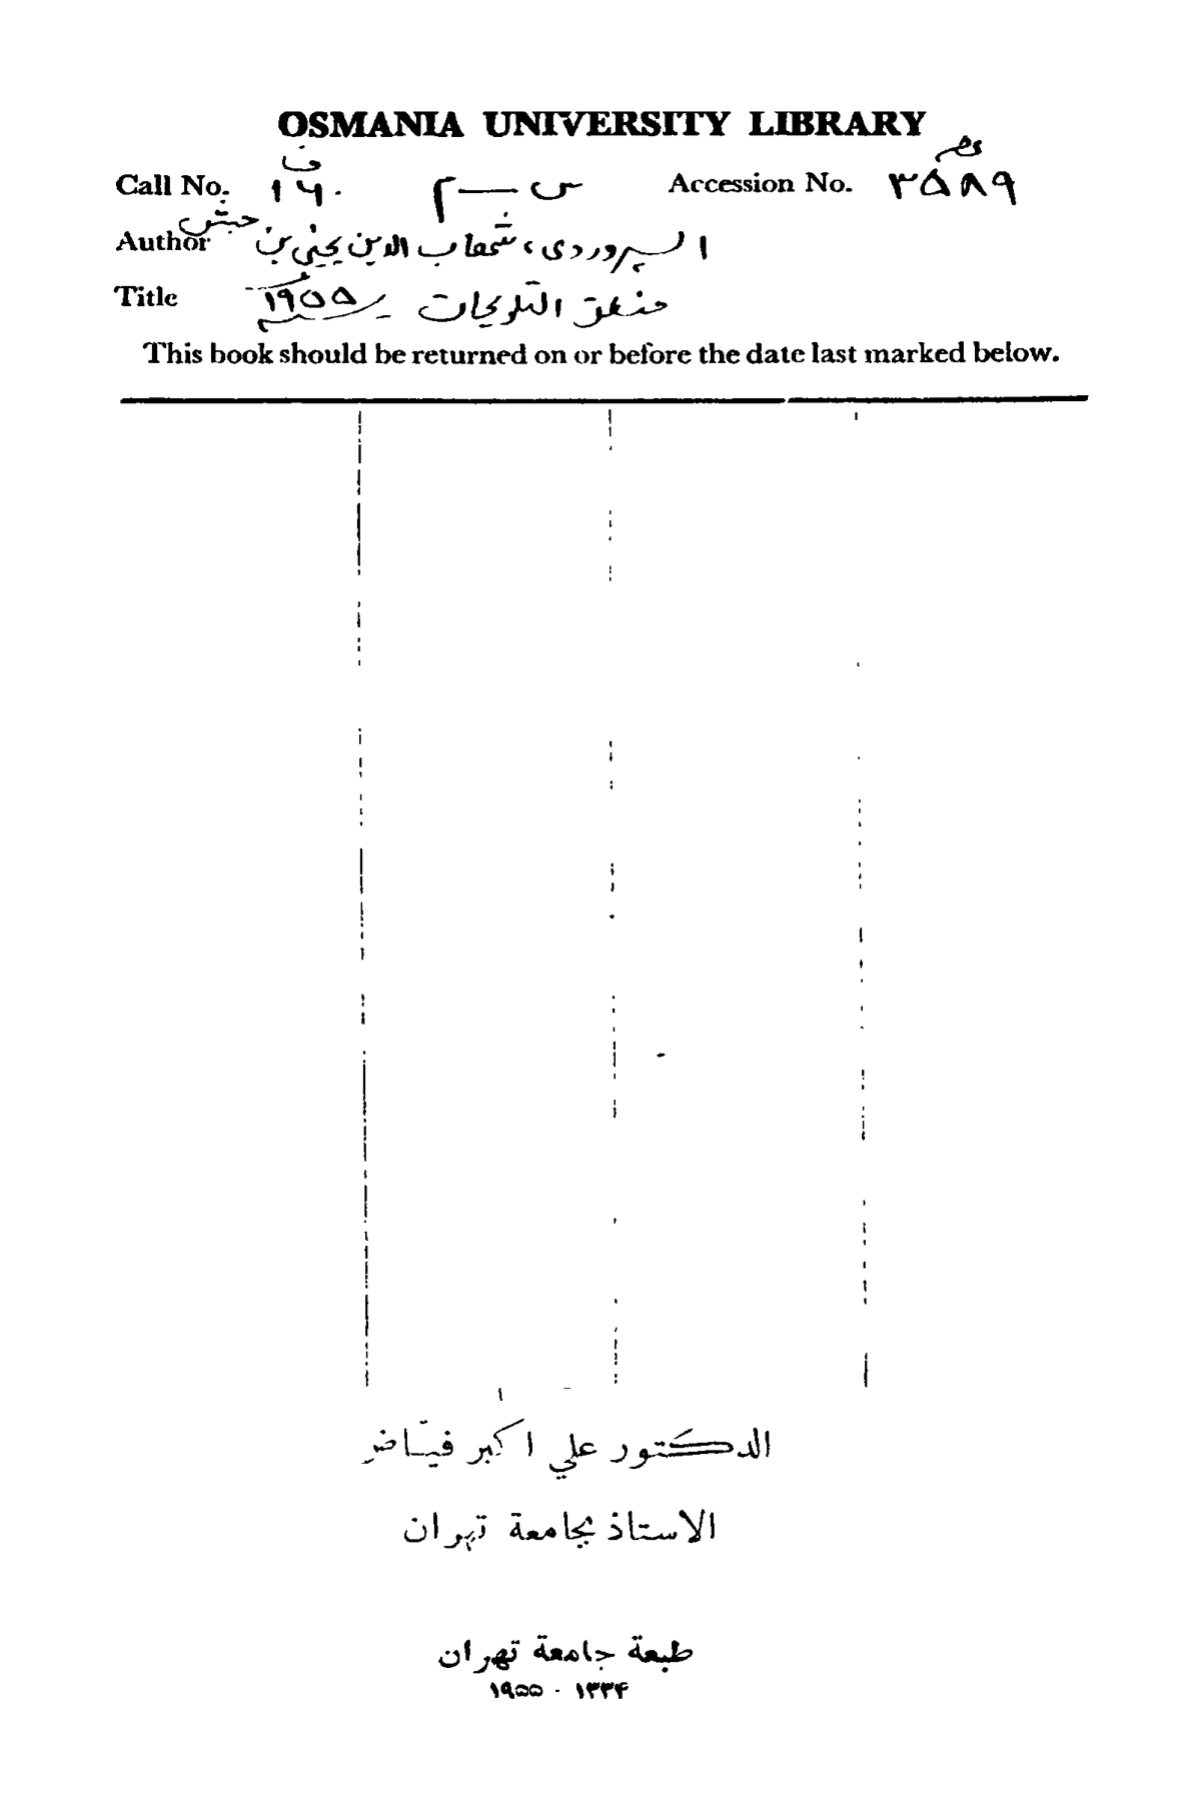 OSMANIA UNIVERSITY LIBRARY
Call No. ف ۱۶۰ س — م Accession No. ۳۵۸۹
Author السہروردی، شهاب الدین یحیٰی بن حبش
Title منطق التلویحات ۱۹۵۵
This book should be returned on or before the date last marked below.
الدكتور علي اكبر فيّاض
الاستاذ بجامعة تهران
طبعة جامعة تهران
۱۳۳۴ - ۱۹۵۵